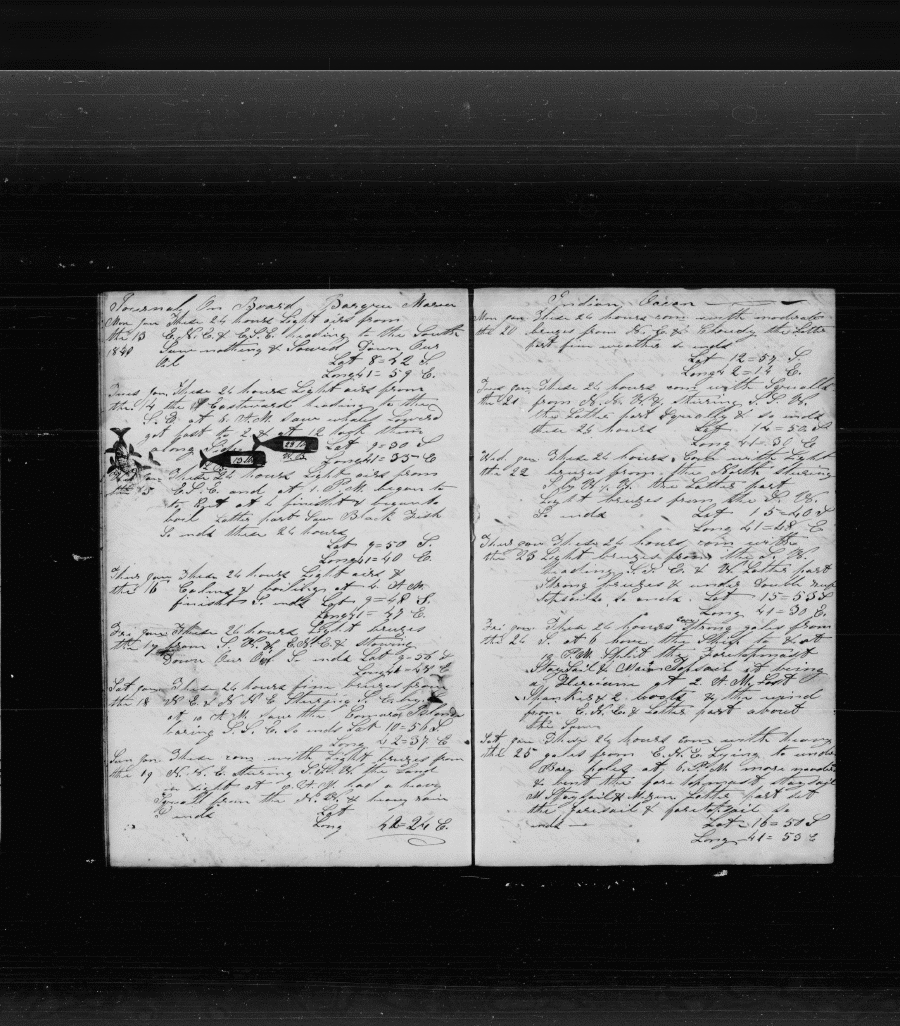 Journal On Board Barque
Mon Jan These 24 hours Light airs from
the 13 E.N.E. & E.S.E. heading to the South
1840 Saw nothing & Stowed Down Our
Oil Lat 8=42 S.
Long 41=59 E.
Tues Jan These 24 hours Light airs from
the 14 the Eastward heading to the
S. E. at 6 A.M. Saw whales Lowerd
got fast to 2 & at 12 got them
along Lat 9=30 S
Long 41=35 E
These 24 hours Light airs from
the 15 E.S.E. and at 1. P.M. began to
Cut at 4 finisht & began to
boil Latter part Saw Black Fish
So ends these 24 hours
Lat 9=50 S.
Long 41=40 E.
Thurs Jan These 24 hours Light airs &
the 16 Calms & boiling at 4 A M
finisht So ends Lat 9=48 S.
Long 41=37 E.
Fri Jan These 24 hours Light breezes
the 17 from & Stowing
Down Our Oil So ends Lat 9=56 S
Long
Sat Jan These 24 hours fine breezes from
the 18 N. E. & N N E Sturing S. E. by
at 10 A.M. Saw the Comoro Islands
baring S.S.E. So ends Lat 10=56 S.
Long 42=37 E
Sun Jan These com with Light breezes from
the 19 N. N. E Sturing the Land
in sight at had a heavy
Squall from the & heavy rain
So ends Lat
Long 42=24 E.
Indian Ocean
Mon Jan These 24 hours com with moderate
the 20 breezes from N. E & Cloudy the Latter
part fine weather So ends
Lat 12=57 S.
Long 42=13 E.
Tues Jan These 24 hours com with Squalls
the 21 from sturing S. S. W.
the Latter part Squally & so ends
these 24 hours Lat 14=50 S
Long 41=31 E
Wed Jan These 24 hours Com with Light
the 22 breezes from the North sturing
the Latter part
Light breezes from the
So ends Lat 15=40 S
Long 41=48 E
Thurs Jan These 24 hours com with
the 23 Light breezes from the
Heading Latter part
Strong breezes & under Double reef
topsails So ends Lat 15=53 S
Long 41=30 E.
Fri Jan These 24 hours Strong gales from
the 24 S at 6 hove the Ship to & at
P.M Split the Foretopmast
Stay Sail & Main Topsail it being
a at 2 A M Lost
Spanker & 2 boats & the wind
from E. N. E & Latter part about
the Same
Sat Jan These 24 hours com with heavy
the 25 gales from E. N. E Lying to under
Bare poles at 6 P.M. more moderate
& bent the fore topmast staysail
Staysail & Latter part set
the foresail & foretopsail So
ends Lat 16=50 S
Long 41=55 E